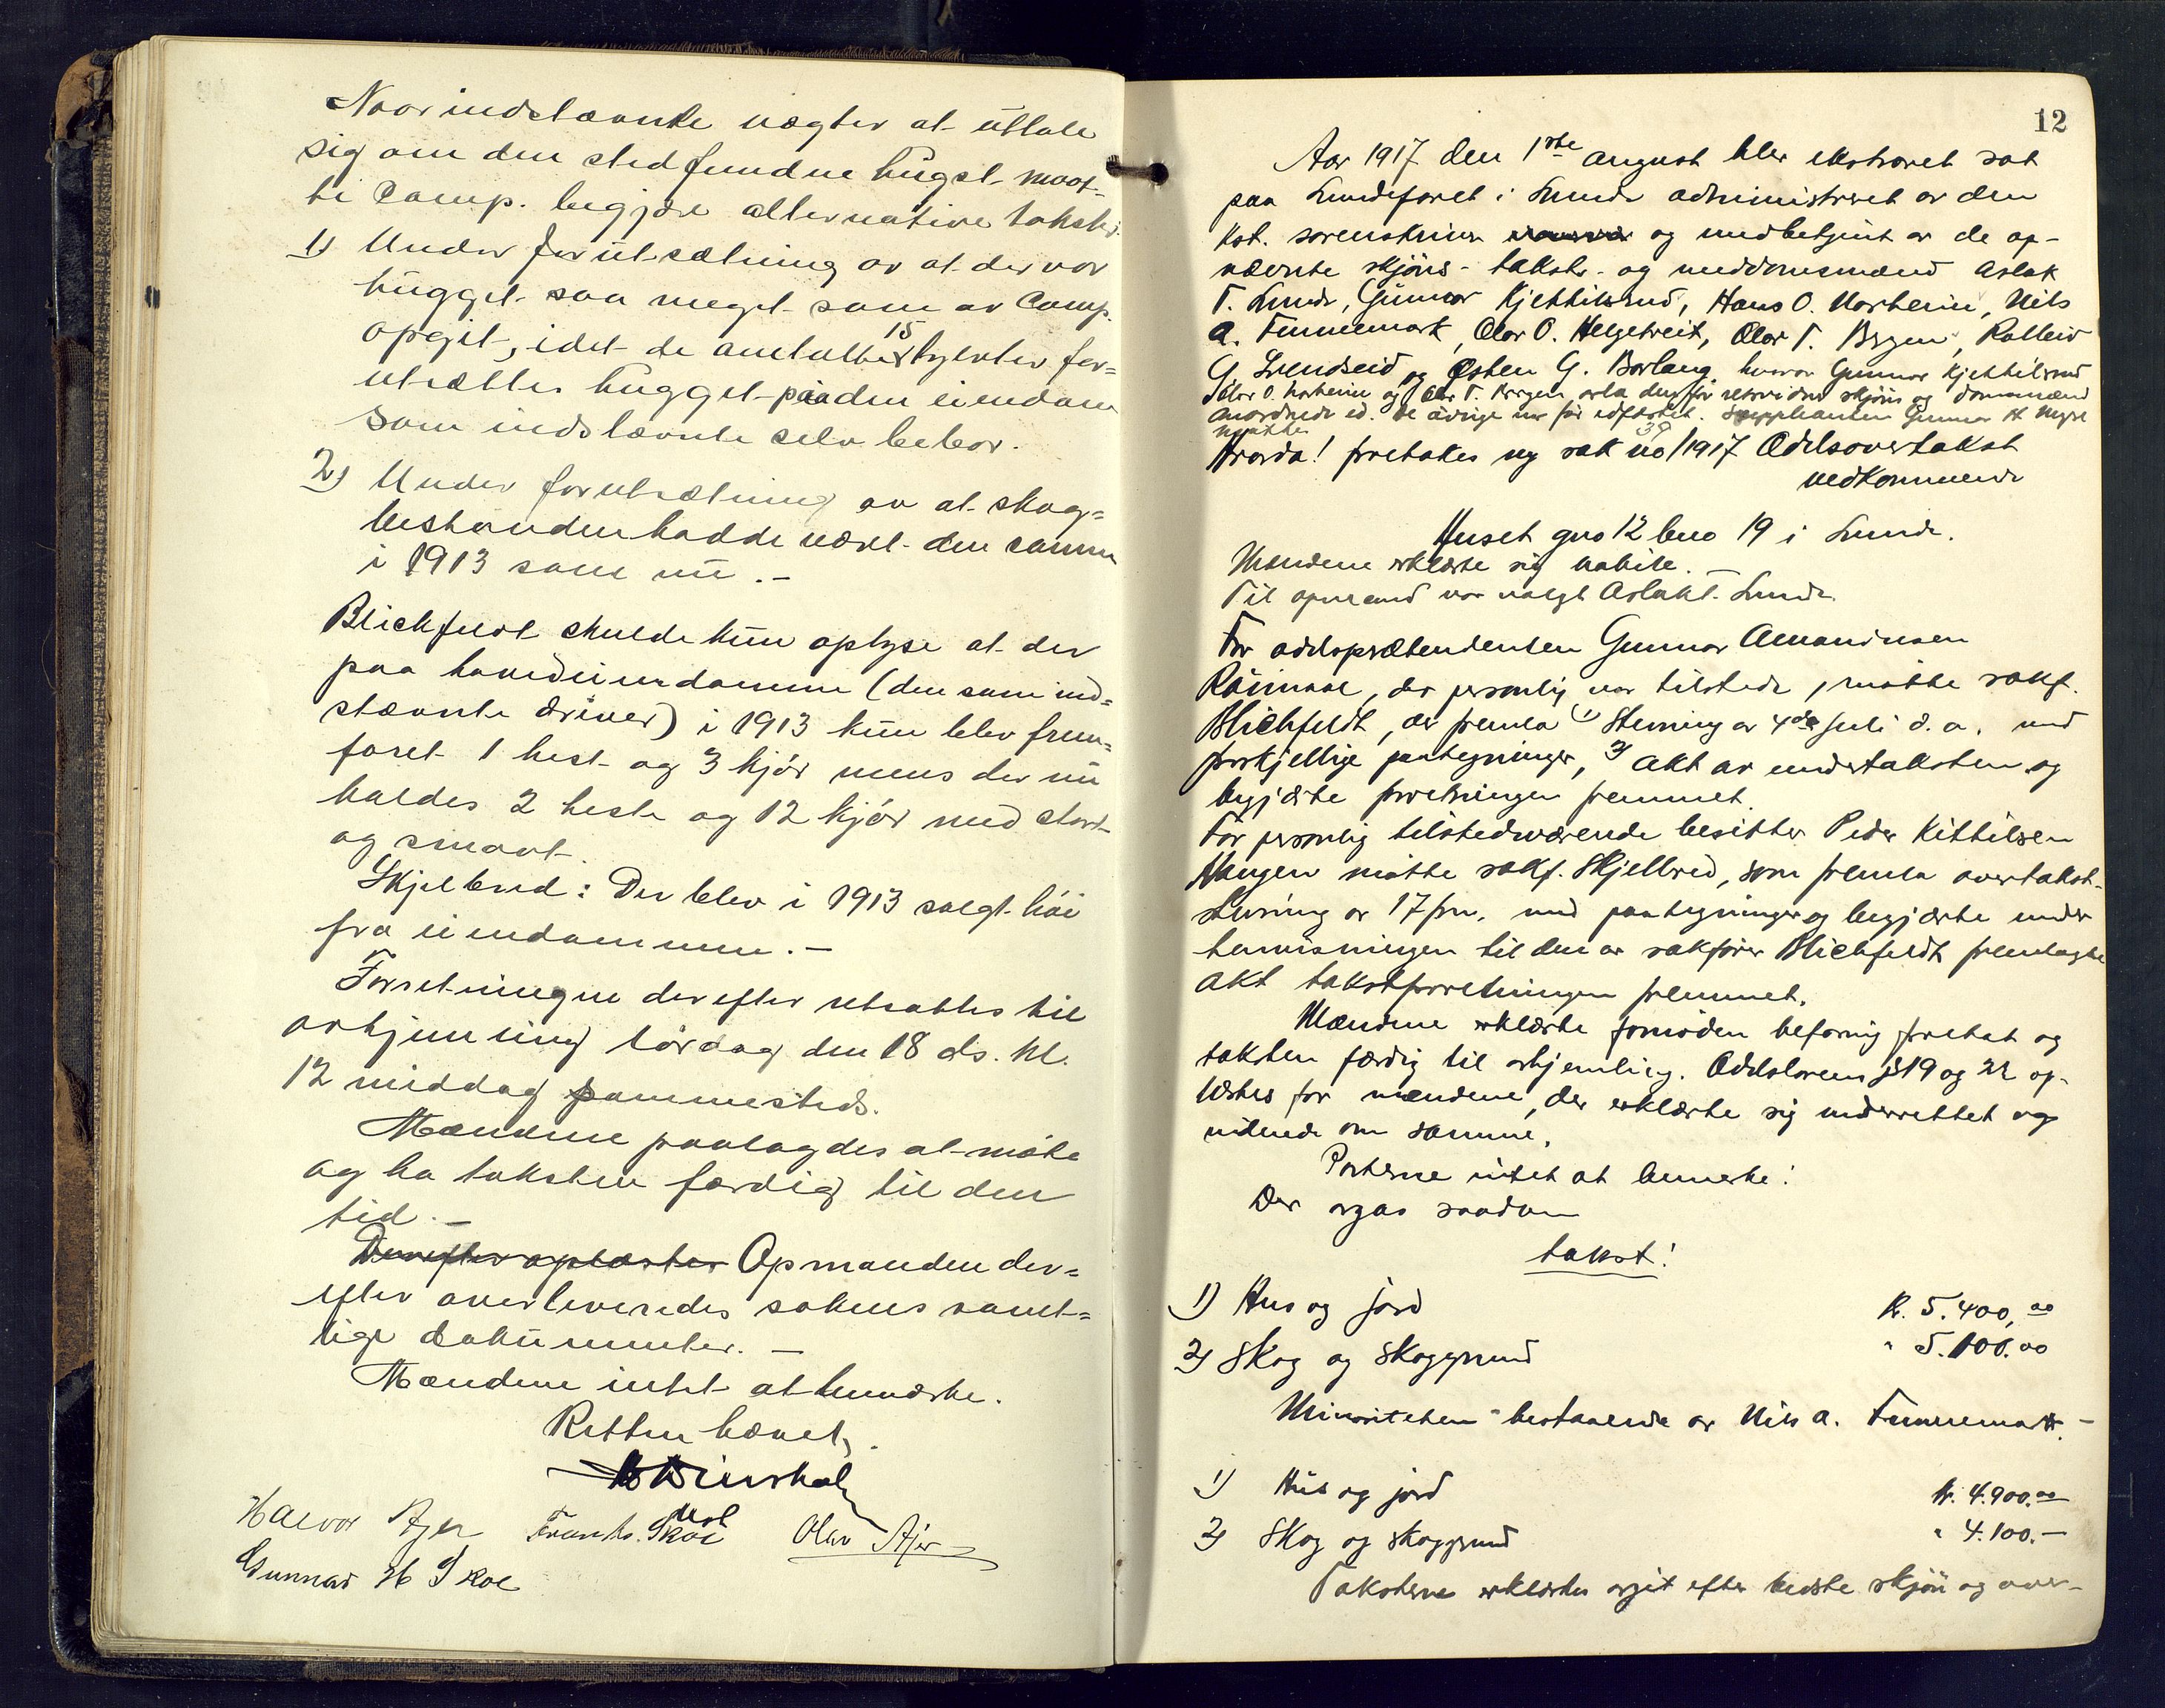 Naar indstævnte nægter at uttale
sig om den stedfundne hugst maat-
te Comp. begjære alternative takster.
1) Under forutsætning av at der var
hugget saa meget som av Comp.
opgit, idet de anslatte 15 tylvter for=
utsættes hugget paa den eiendom
som indstævnte selv bebor.
2) Under forutsætning av at skog=
bestanden hadde været den samme
i 1913 som nu.-
Blichfeldt skulde kun oplyse at der
paa hovedeiendommen (den som ind=
stævnte driver) i 1913 kun blev frem=
foret 1 hest og 3 kjør mens der nu
haldes 2 heste og 12 kjør med stort
og smaat.
Skjelbred: Der blev i 1913 solgt høi
fra eiendommen.-
Forretningen derefter utsattes til
avhjemling lørdag den 18 ds. kl.
12 middag sammesteds.
Mændene paalagdes at møte
og ha taksten færdig til den
tid.-
Derefter oplæstes Opmanden der=
efter overleveredes sakens samt=
lige dokumenter.-
Mændene intet at bemærke.
Retten hævet.
Halvor Ajer Olav Ajer
Gunnar H Skoe
12
Aar 1917 den 1ste august blev ekstraret sat
paa Lundefaret i Lunde administreret av den
kst. sorenskriver og medbetjent av de op-
nævnte skjøns- takst- og meddomsmænd Aslak
T. Lunde, Gunnar Kjettilsrud, Hans O. Narheim, Nils
A. Tennemark, Olav O. Helgetveit, Olav T. Bergen, Rolleiv
G. Svendseid og Østen G. Borlaug, hvorav Gunnar Kjettilsrud
Olav O. Narheim og Olav T. Bergen avla den for uteværdige skjøns og domsmænd
anordnede ed. De øvrige var før edfæstet. Supplianten Gunnar H. Myre
møtte
Hvorda! foretokes ny sak no 39/1917 Odelsovertakst
vedkommende
Huset gno 12 bno 19 i Lunde.
Mændene erklærte sig habile.
Til opmand var valgt Aslak T. Lunde.
For odelsprætendenten Gunnar Amundsen
Røimaal, der personlig var tilstede, møtte sakf.
Blichfeldt, der fremla 1) Stevning av 4de juli d.a. med
forskjellige paategninger, 2) akt av undertaksten og
begjærte forretningen fremmet.
For personlig tilstedeværende besitter Peder Kittilsen
Haugen møtte sakf. Skjelbred, som fremla overtakst-
stevning av 17 f.m. med paategninger og begjærte under
henvisningen til den av sakfører Blichfeldt fremlagte
akt takstforretningen fremmet.
Mændene erklærte fornøden befaring foretat og
taksten færdig til avhjemling. Odelslovens §§ 19 og 22 op-
læstes for mændene, der erklærte sig underrettet og
vitende om samme.
Parterne intet at bemerke!
Der avgas saadan
takst!
1) Hus og jord Kr. 5.400,00
2) Skog og skoggrund " 5.100.00
Minoriteten - bestaaende av Nils A. Tennemark. -
1) Hus og jord kr. 4.900.00
2) Skog og skoggrund " 4.100.-
Taksterne erklærtes avgit efter bedste skjøn og over-